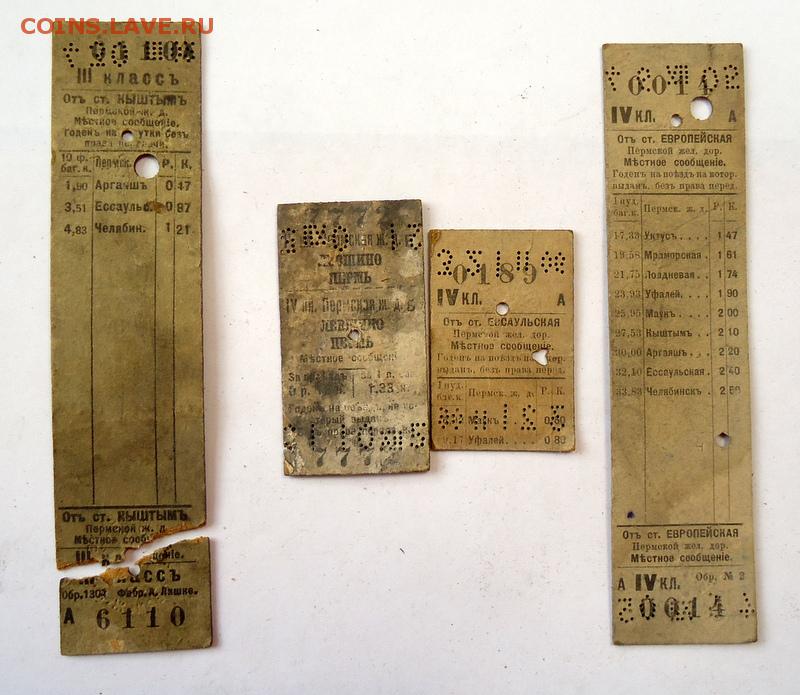 COINS.LAVE.RU
III классъ
Отъ ст. КЫШТЫМЪ
Пермской ж. д.
Мѣстное сообщеніе.
Годенъ на сутки безъ
10 ф. баг. к. Пермск. Р. К.
1,90 Аргаяшъ 0 47
3,51 Ессаульс. 0 87
4,83 Челябин. 1 21
Отъ ст. КЫШТЫМЪ
Пермской ж. д.
Мѣстное
III классъ
Обр. 1304 Фабр. А. Лашке.
А 6110
7 7 7 7
ЛЕВШИНО
ПЕРМЬ
IV кл. Пермская ж. д. Б
ЛЕВШИНО
ПЕРМЬ
Мѣстное сообщені
7 7 7
0189
IV КЛ. А
Отъ ст. ЕССАУЛЬСКАЯ
Пермской жел. дор.
Мѣстное сообщеніе.
Годенъ на поѣздъ на котор.
выданъ, безъ права перед.
1 пуд. баг. к. Пермск. ж. д. Р. К.
Маукъ 0,60
9,17 Уфалей. . . . 0 80
0014
IV КЛ. А
Отъ ст. ЕВРОПЕЙСКАЯ
Пермской жел. дор.
Мѣстное сообщеніе.
Годенъ на поѣздъ на котор.
выданъ, безъ права перед.
1 пуд. баг. к. Пермск. ж. д. Р. К.
17,33 Уктусъ. . . . 1 47
19,58 Мраморская . 1 61
21,75 Полдневая . . 1 74
23,93 Уфалей. . . . 1 90
25,95 Маукъ . . . . 2 00
27,53 Кыштымъ . . 2 10
30,00 Аргаяшъ. . . 2 20
32,10 Ессаульская . 2 40
33,83 Челябинскъ . 2 50
Отъ ст. ЕВРОПЕЙСКАЯ
Пермской жел. дор.
Мѣстное сообщеніе.
А IV КЛ. Обр. № 2
0014